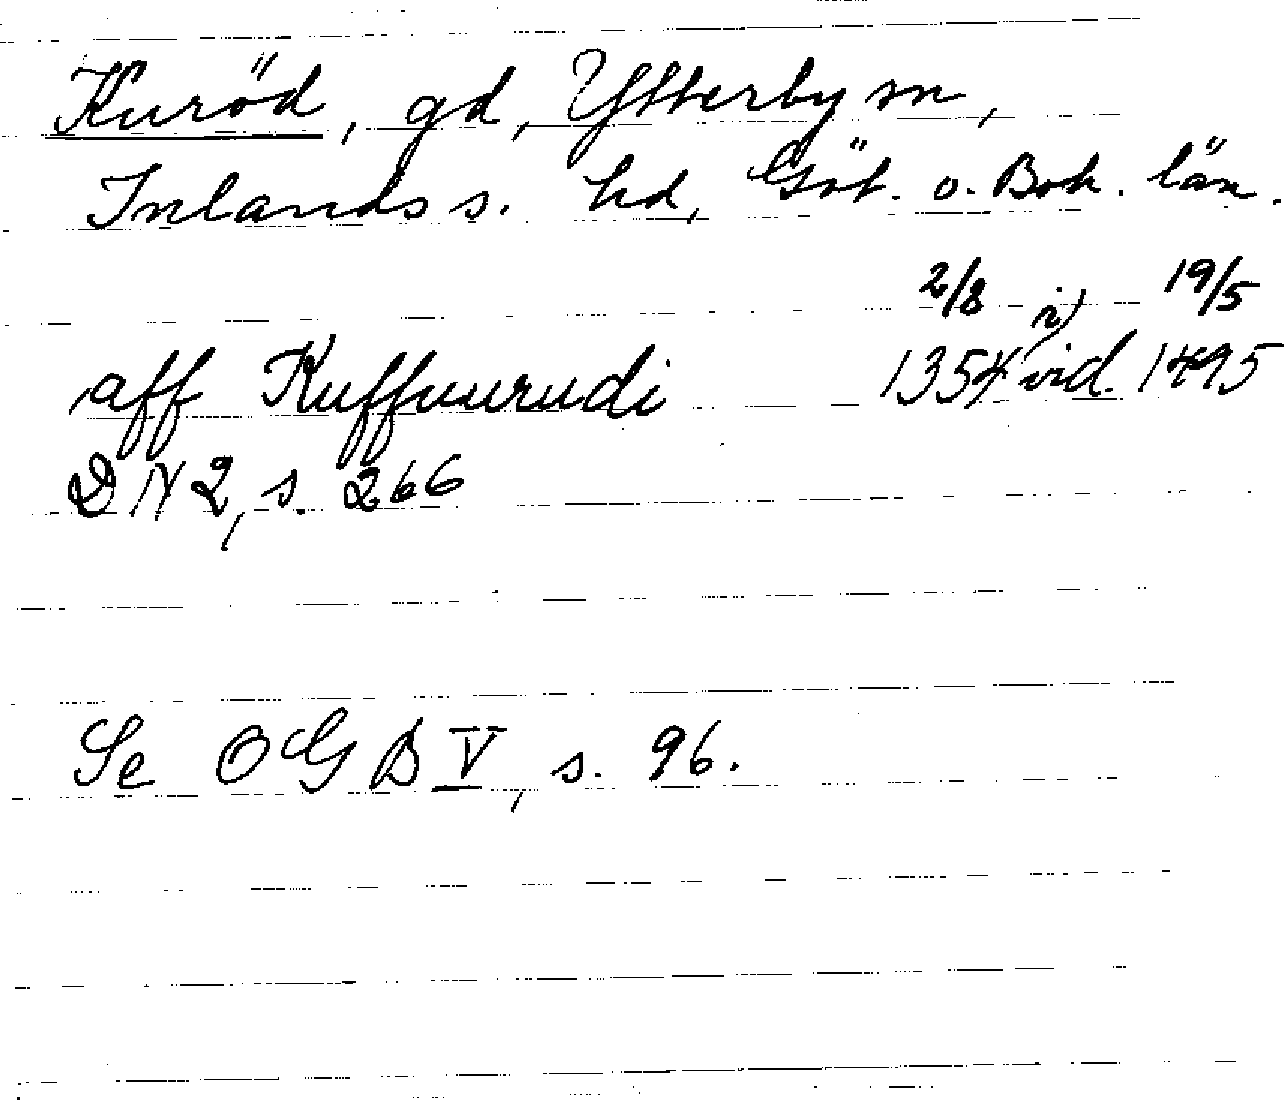 Kuröd, gd, Ytterby sn,
Inlands s. hd, Göt. o. Boh. län.
2/8 i) 19/5
aff Kuffuurudi 1354 vid. 1495
DN 2, s. 266
Se OGB V, s. 96.